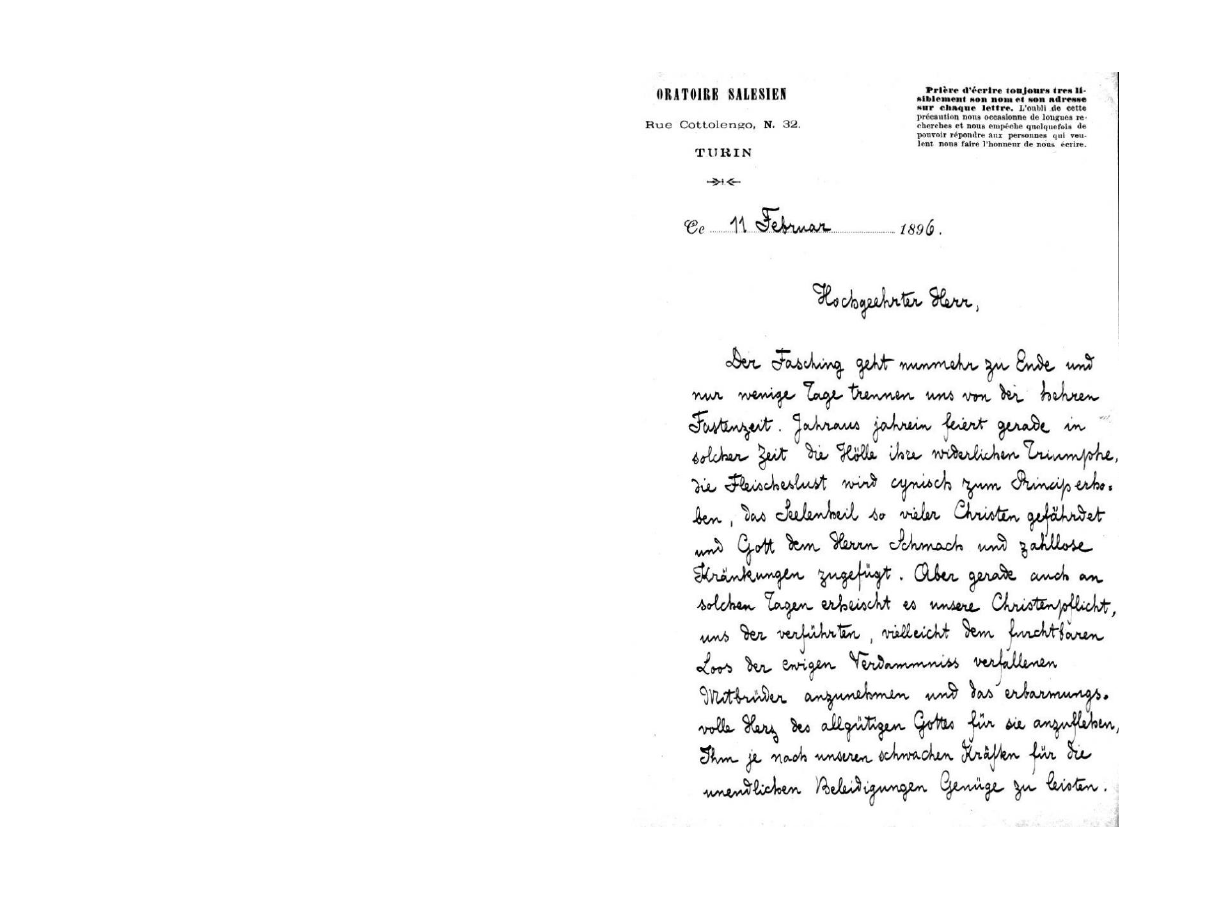 ORATOIRE SALESIEN
Rue Cottolengo, N. 32.
TURIN
Prière d'écrire toujours tres li-
siblement son nom et son adresse
sur chaque lettre. L'oubli de cette
précaution nous occasionne de longues re-
cherches et nous empêche quelquefois de
pouvoir répondre aux personnes qui veu-
lent nous faire l'honneur de nous écrire.
Ce 11 Februar 1896.
Hochgeehrter Herr,
Der Fasching geht nunmehr zu Ende und
nur wenige Tage trennen uns von der hehren
Fastenzeit. Jahraus jahrein feiert gerade in
solcher Zeit die Hölle ihre widerlichen Triumphe,
die Fleischeslust wird cynisch zum Princip erho-
ben, das Seelenheil so vieler Christen gefährdet
und Gott dem Herrn Schmach und zahllose
Kränkungen zugefügt. Aber gerade auch an
solchen Tagen erheischt es unsere Christenpflicht,
uns der verführten, vielleicht dem furchtbaren
Loos der ewigen Verdammniss verfallenen
Mitbrüder anzunehmen und das erbarmungs-
volle Herz des allgütigen Gottes für sie anzuflehen,
Ihm je nach unseren schwachen Kräften für die
unendlichen Beleidigungen Genüge zu leisten.